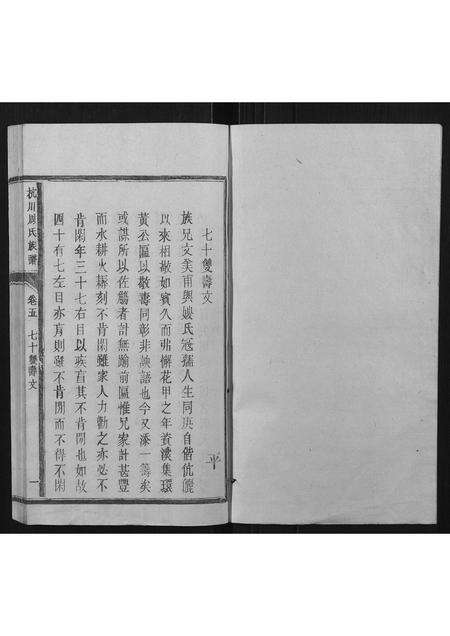 七十雙壽文
族兄文美甫與嫂氏冠孺人生同庚自偕伉儷
以來相敬如賓久而弗懈花甲之年資深集環
黃公區以敬壽同彰非諛語也今又添一善矣
或謀所以佐觴者計無踰前區惟兄家計甚豐
而水耕火耨刻不肯閑雖家人力勸之亦必不
肯閑年三十七右目以疾盲其不肯閑也如故
四十有七左目亦盲則雖不肯閑而不得不閑
杭川周氏族譜
卷五
七十雙壽文
一